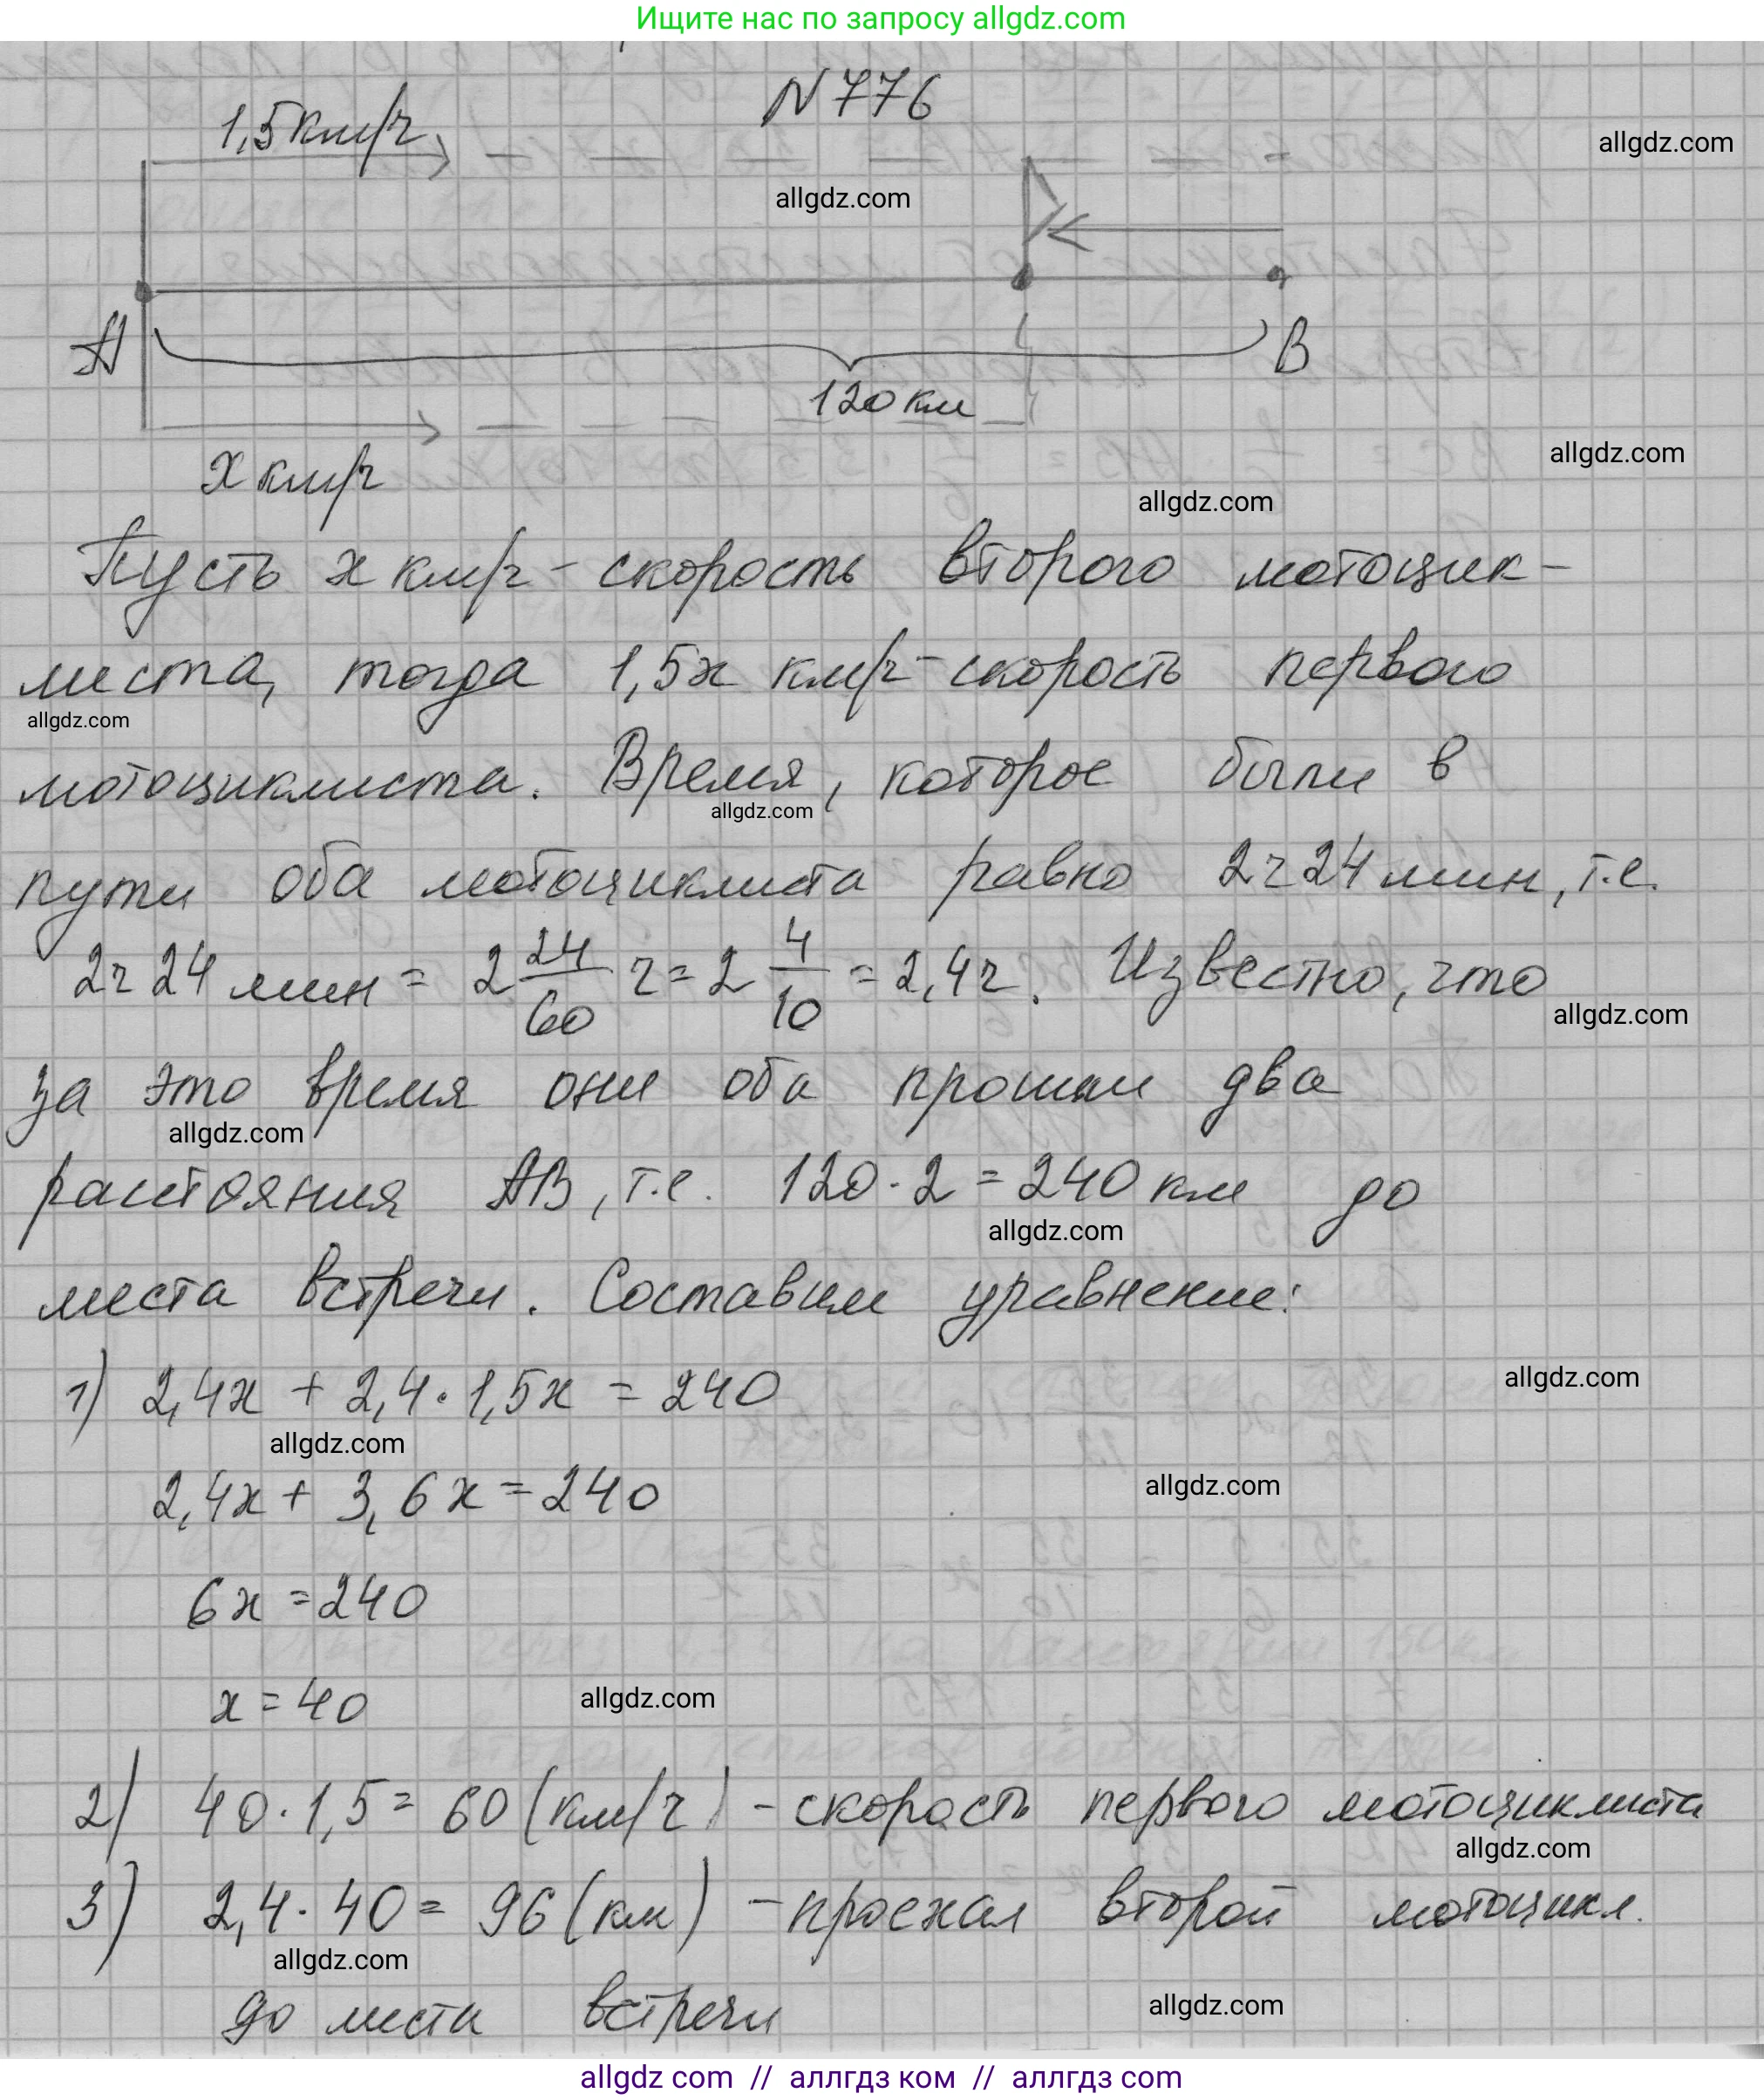 Ищите нас по запросу allgdz.com
N 776
1,5км/ч
allgdz.com
allgdz.com
A
B
120 км
x км/ч
allgdz.com
allgdz.com
Пусть x км/ч - скорость второго мотоцик-
листа, тогда 1,5x км/ч - скорость первого
allgdz.com
мотоциклиста. Время, которое были в
allgdz.com
пути оба мотоциклиста равно 2ч 24 мин, т.е.
2ч 24 мин = 2 24/60 ч = 2 4/10 = 2,4ч. Известно, что
allgdz.com
за это время они оба прошли два
allgdz.com
расстояния AB, т.е. 120 · 2 = 240 км до
allgdz.com
места встречи. Составим уравнение:
1) 2,4x + 2,4 · 1,5x = 240
allgdz.com
allgdz.com
2,4x + 3,6x = 240
allgdz.com
6x = 240
x = 40
allgdz.com
2) 40 · 1,5 = 60 (км/ч) - скорость первого мотоциклиста
allgdz.com
3) 2,4 · 40 = 96 (км) - проехал второй мотоцикл.
allgdz.com
до места встречи
allgdz.com
allgdz com // аллгдз ком // аллгдз com